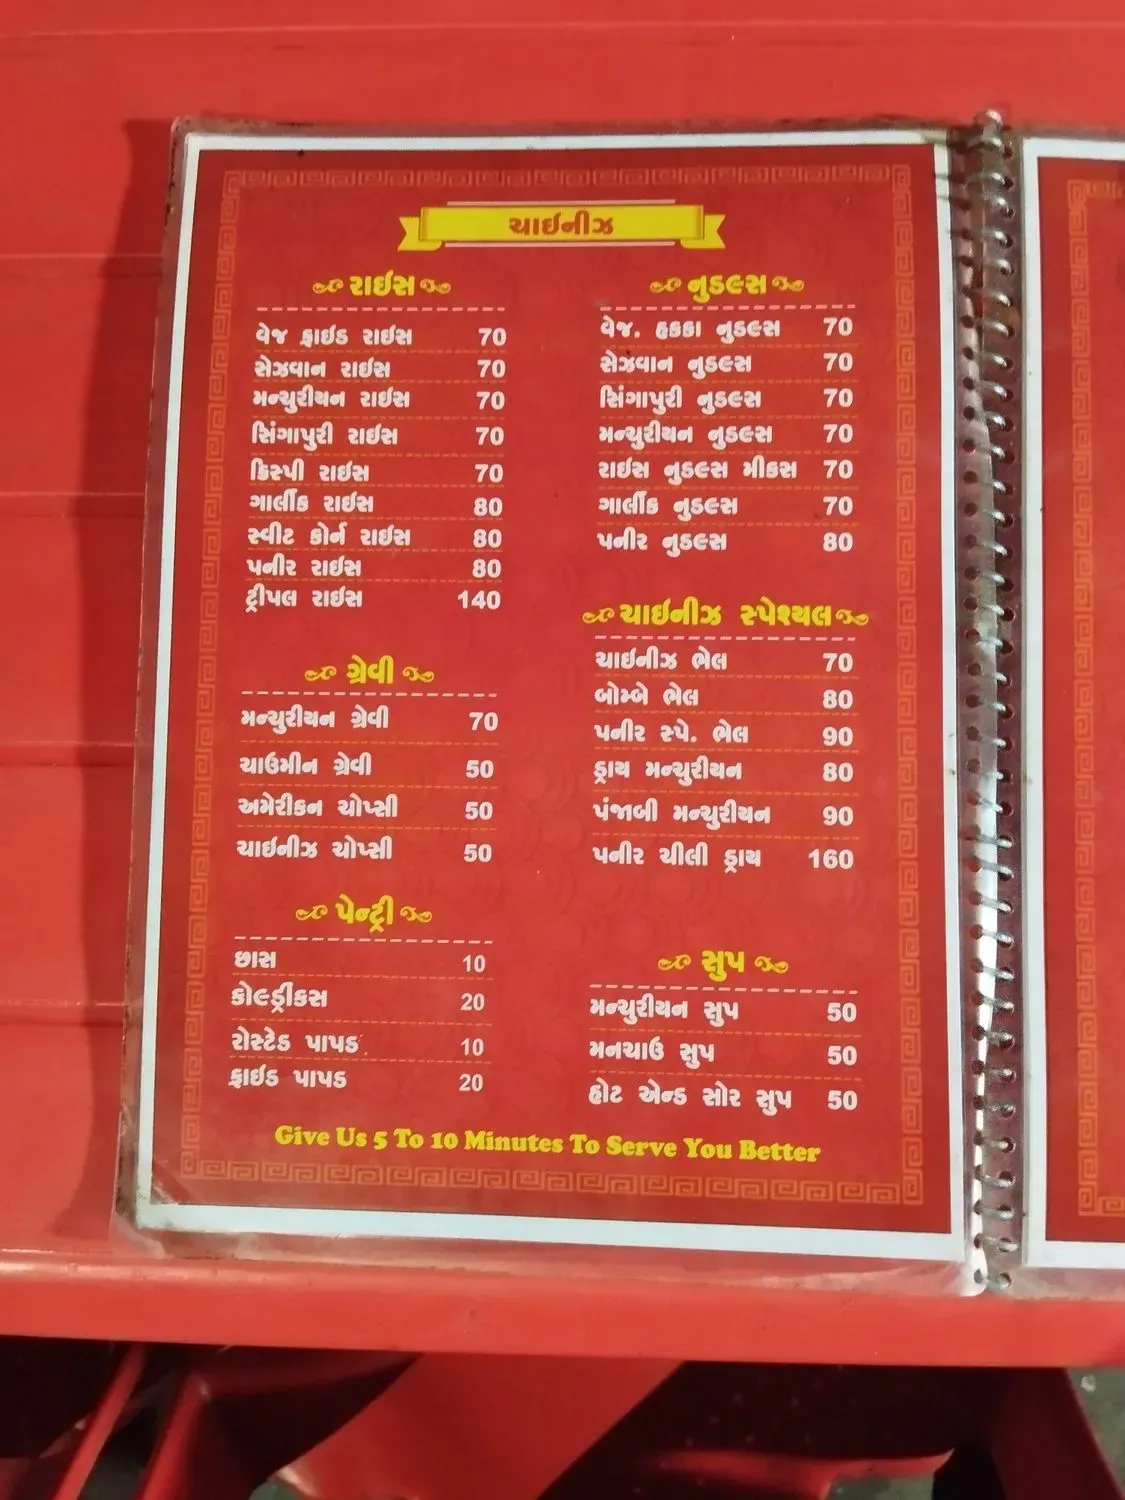 ચાઈનીઝ
રાઈસ
વેજ ફ્રાઈડ રાઈસ 70
સેઝવાન રાઈસ 70
મન્ચુરીયન રાઈસ 70
સિંગાપુરી રાઈસ 70
ક્રિસ્પી રાઈસ 70
ગાર્લીક રાઈસ 80
સ્વીટ કોર્ન રાઈસ 80
પનીર રાઈસ 80
ટ્રીપલ રાઈસ 140
ગ્રેવી
મન્ચુરીયન ગ્રેવી 70
ચાઉમીન ગ્રેવી 50
અમેરીકન ચોપ્સી 50
ચાઈનીઝ ચોપ્સી 50
પેન્ટ્રી
છાસ 10
કોલ્ડ્રીકસ 20
રોસ્ટેડ પાપડ 10
ફ્રાઈડ પાપડ 20
નુડલ્સ
વેજ. હકકા નુડલ્સ 70
સેઝવાન નુડલ્સ 70
સિંગાપુરી નુડલ્સ 70
મન્ચુરીયન નુડલ્સ 70
રાઈસ નુડલ્સ મીકસ 70
ગાર્લીક નુડલ્સ 70
પનીર નુડલ્સ 80
ચાઈનીઝ સ્પેશ્યલ
ચાઈનીઝ ભેલ 70
બોમ્બે ભેલ 80
પનીર સ્પે. ભેલ 90
ડ્રાય મન્ચુરીયન 80
પંજાબી મન્ચુરીયન 90
પનીર ચીલી ડ્રાય 160
સુપ
મન્ચુરીયન સુપ 50
મનચાઉ સુપ 50
હોટ એન્ડ સોર સુપ 50
Give Us 5 To 10 Minutes To Serve You Better